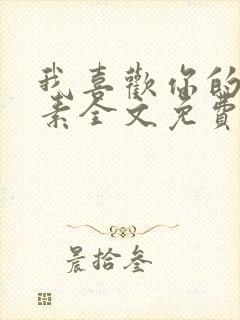 我喜歡你的
素全文免費
晨拾叁